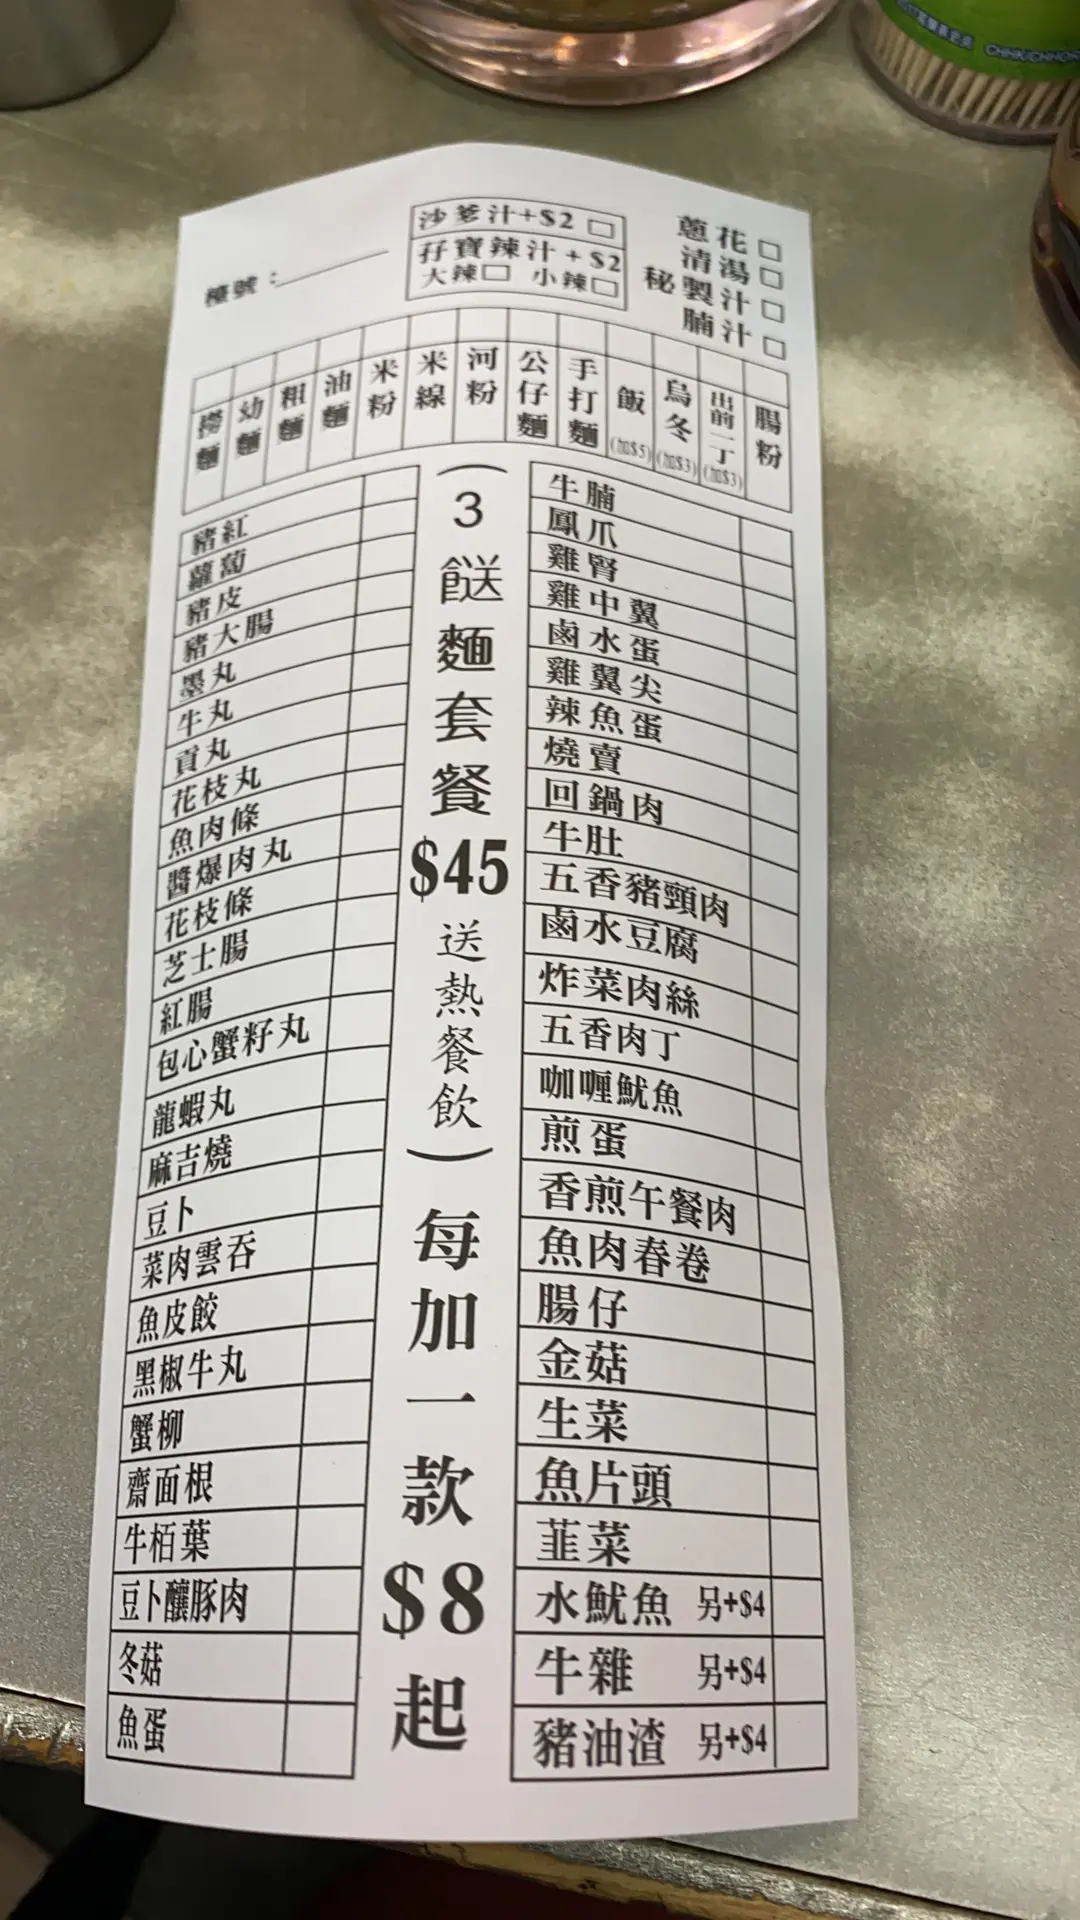 CHINKICHHOK
檯號：
沙爹汁+$2 □
孖寶辣汁+$2
大辣□ 小辣□
蔥花 □
清湯 □
秘製汁 □
腩汁 □
撈麵
幼麵
粗麵
油麵
米粉
米線
河粉
公仔麵
手打麵
飯(加$5)
烏冬(加$3)
出前一丁(加$3)
腸粉
豬紅
蘿蔔
豬皮
豬大腸
墨丸
牛丸
貢丸
花枝丸
魚肉條
醬爆肉丸
花枝條
芝士腸
紅腸
包心蟹籽丸
龍蝦丸
麻吉燒
豆卜
菜肉雲吞
魚皮餃
黑椒牛丸
蟹柳
齋面根
牛栢葉
豆卜釀豚肉
冬菇
魚蛋
（3餸麵套餐$45送熱餐飲）每加一款$8起
牛腩
鳳爪
雞腎
雞中翼
鹵水蛋
雞翼尖
辣魚蛋
燒賣
回鍋肉
牛肚
五香豬頸肉
鹵水豆腐
炸菜肉絲
五香肉丁
咖喱魷魚
煎蛋
香煎午餐肉
魚肉春卷
腸仔
金菇
生菜
魚片頭
韮菜
水魷魚 另+$4
牛雜 另+$4
豬油渣 另+$4